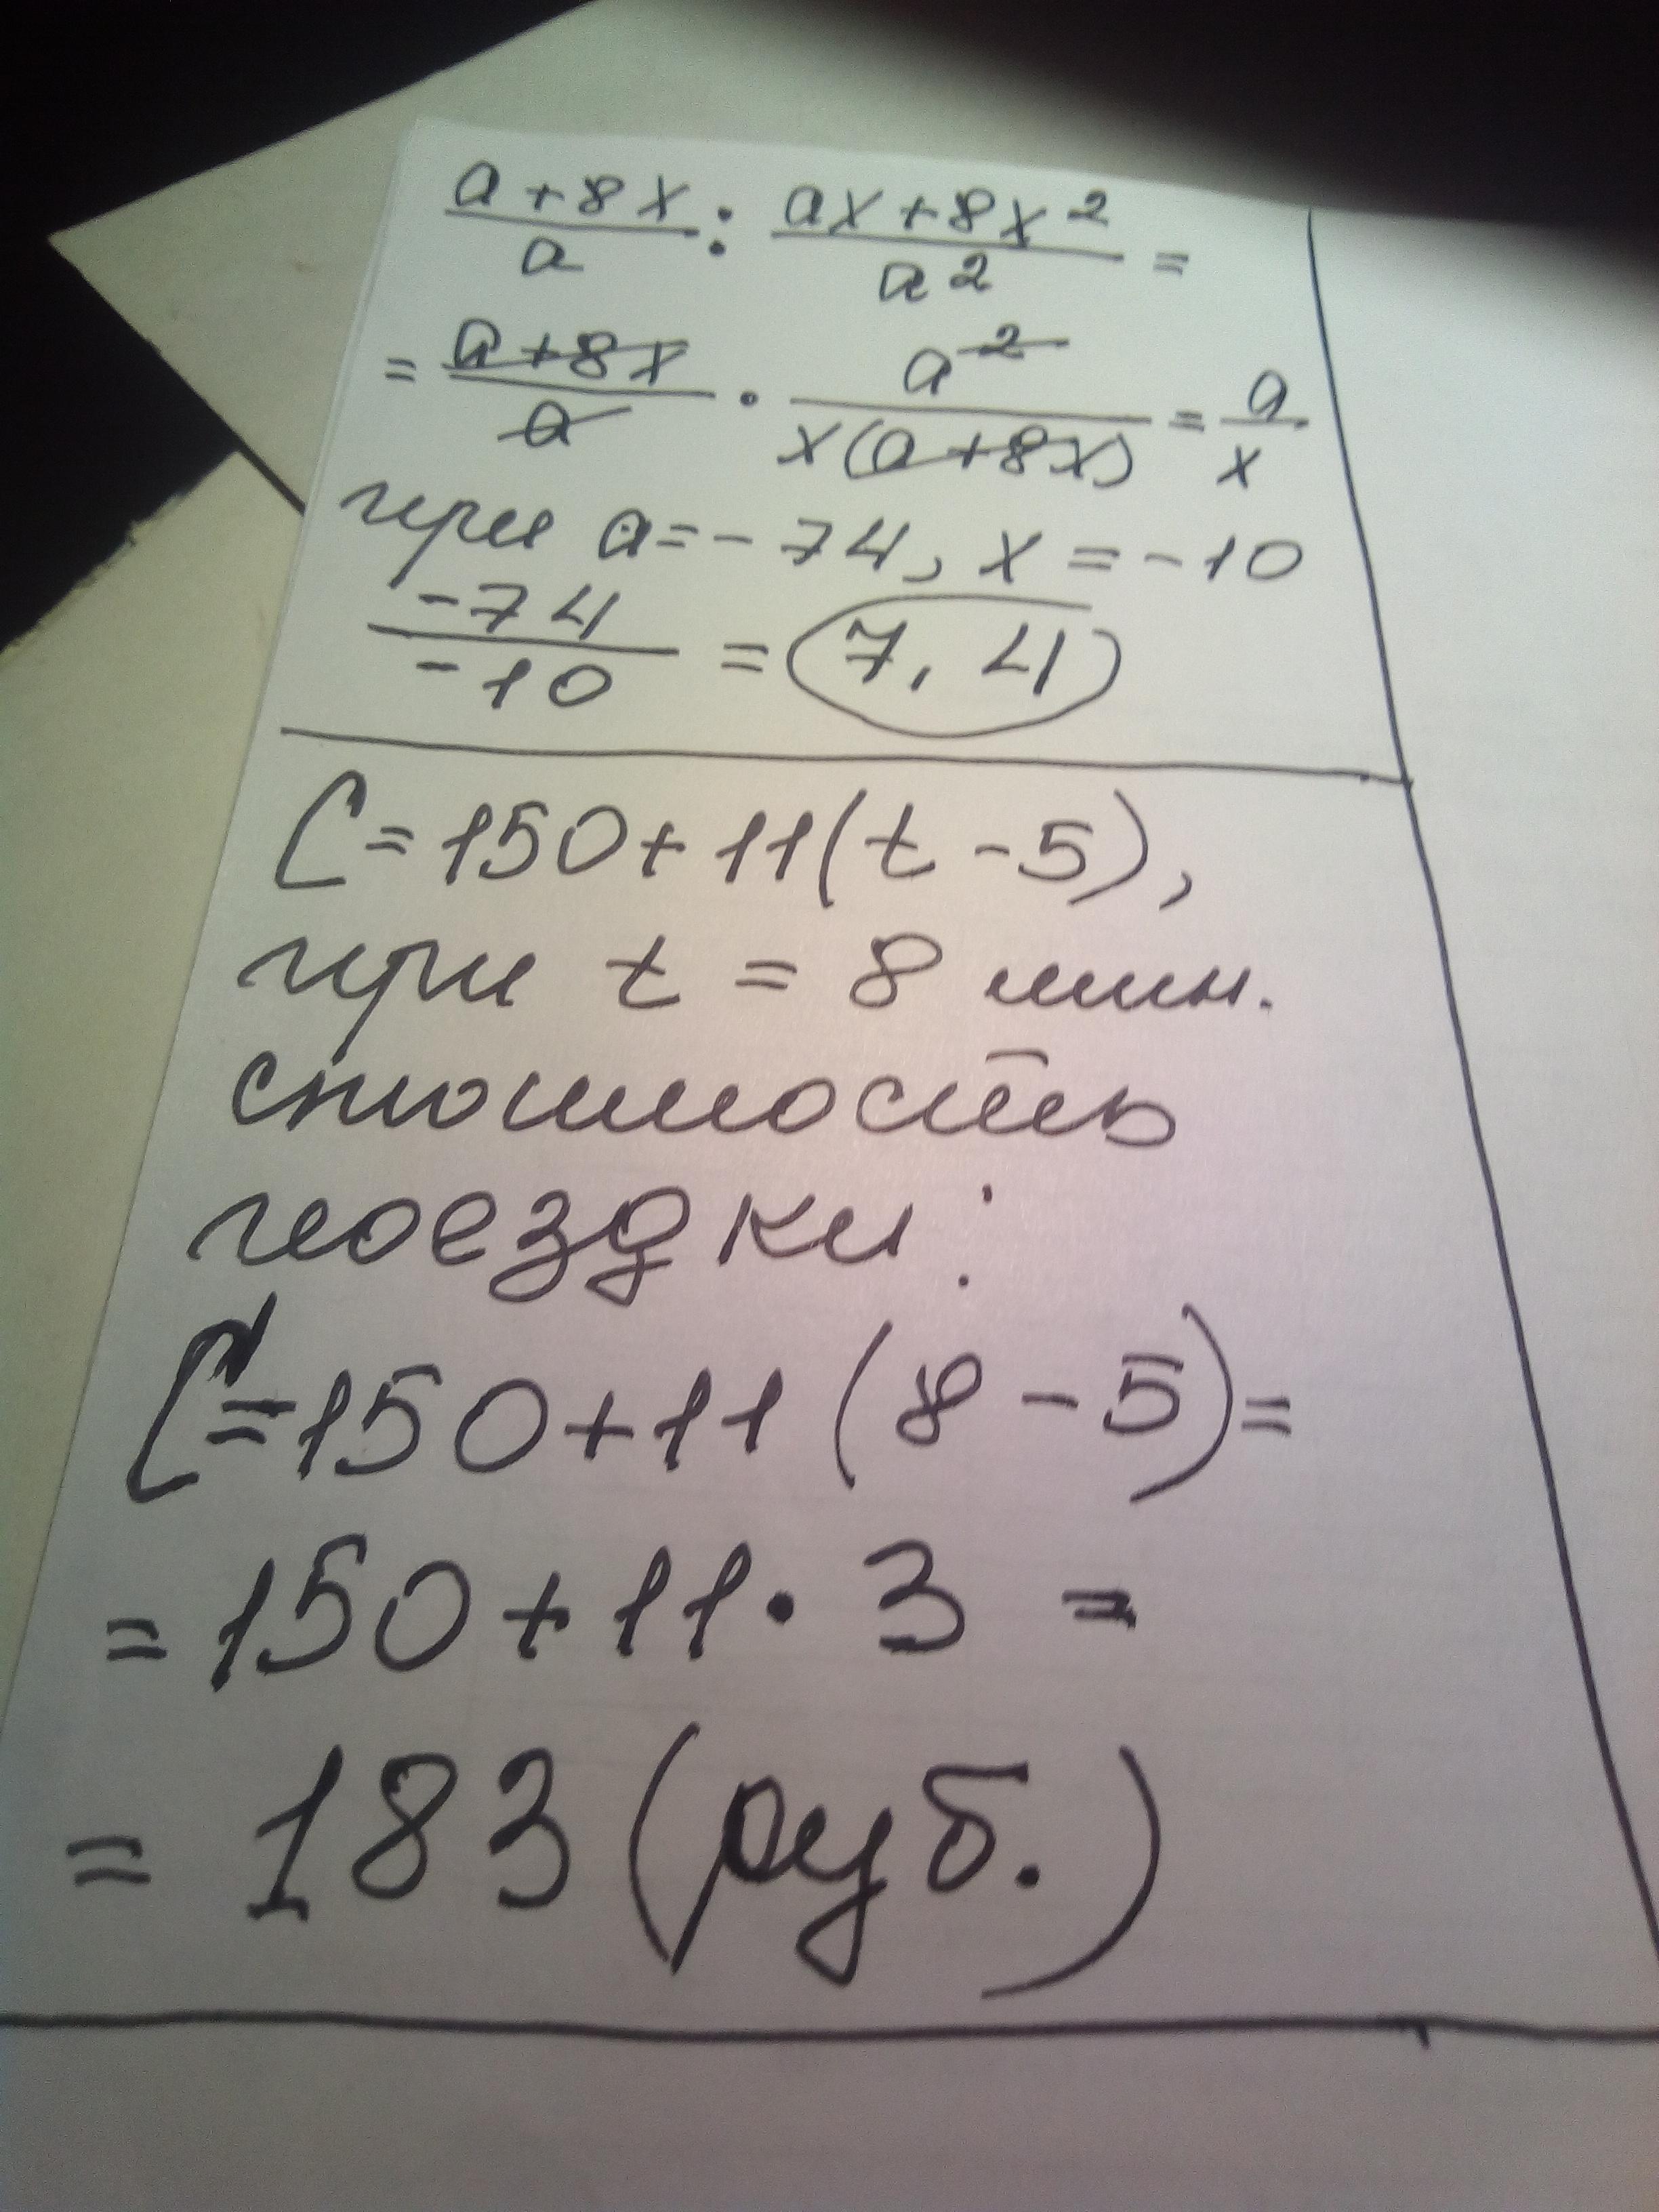 (a+8x)/a : (ax+8x²)/a² =
= (a+8x)/a · a²/(x(a+8x)) = a/x
при a=-74, x=-10
-74/-10 = 7,4
C=150+11(t-5),
при t = 8 мин.
стоимость
поездки:
C=150+11(8-5)=
=150+11·3=
=183(руб.)